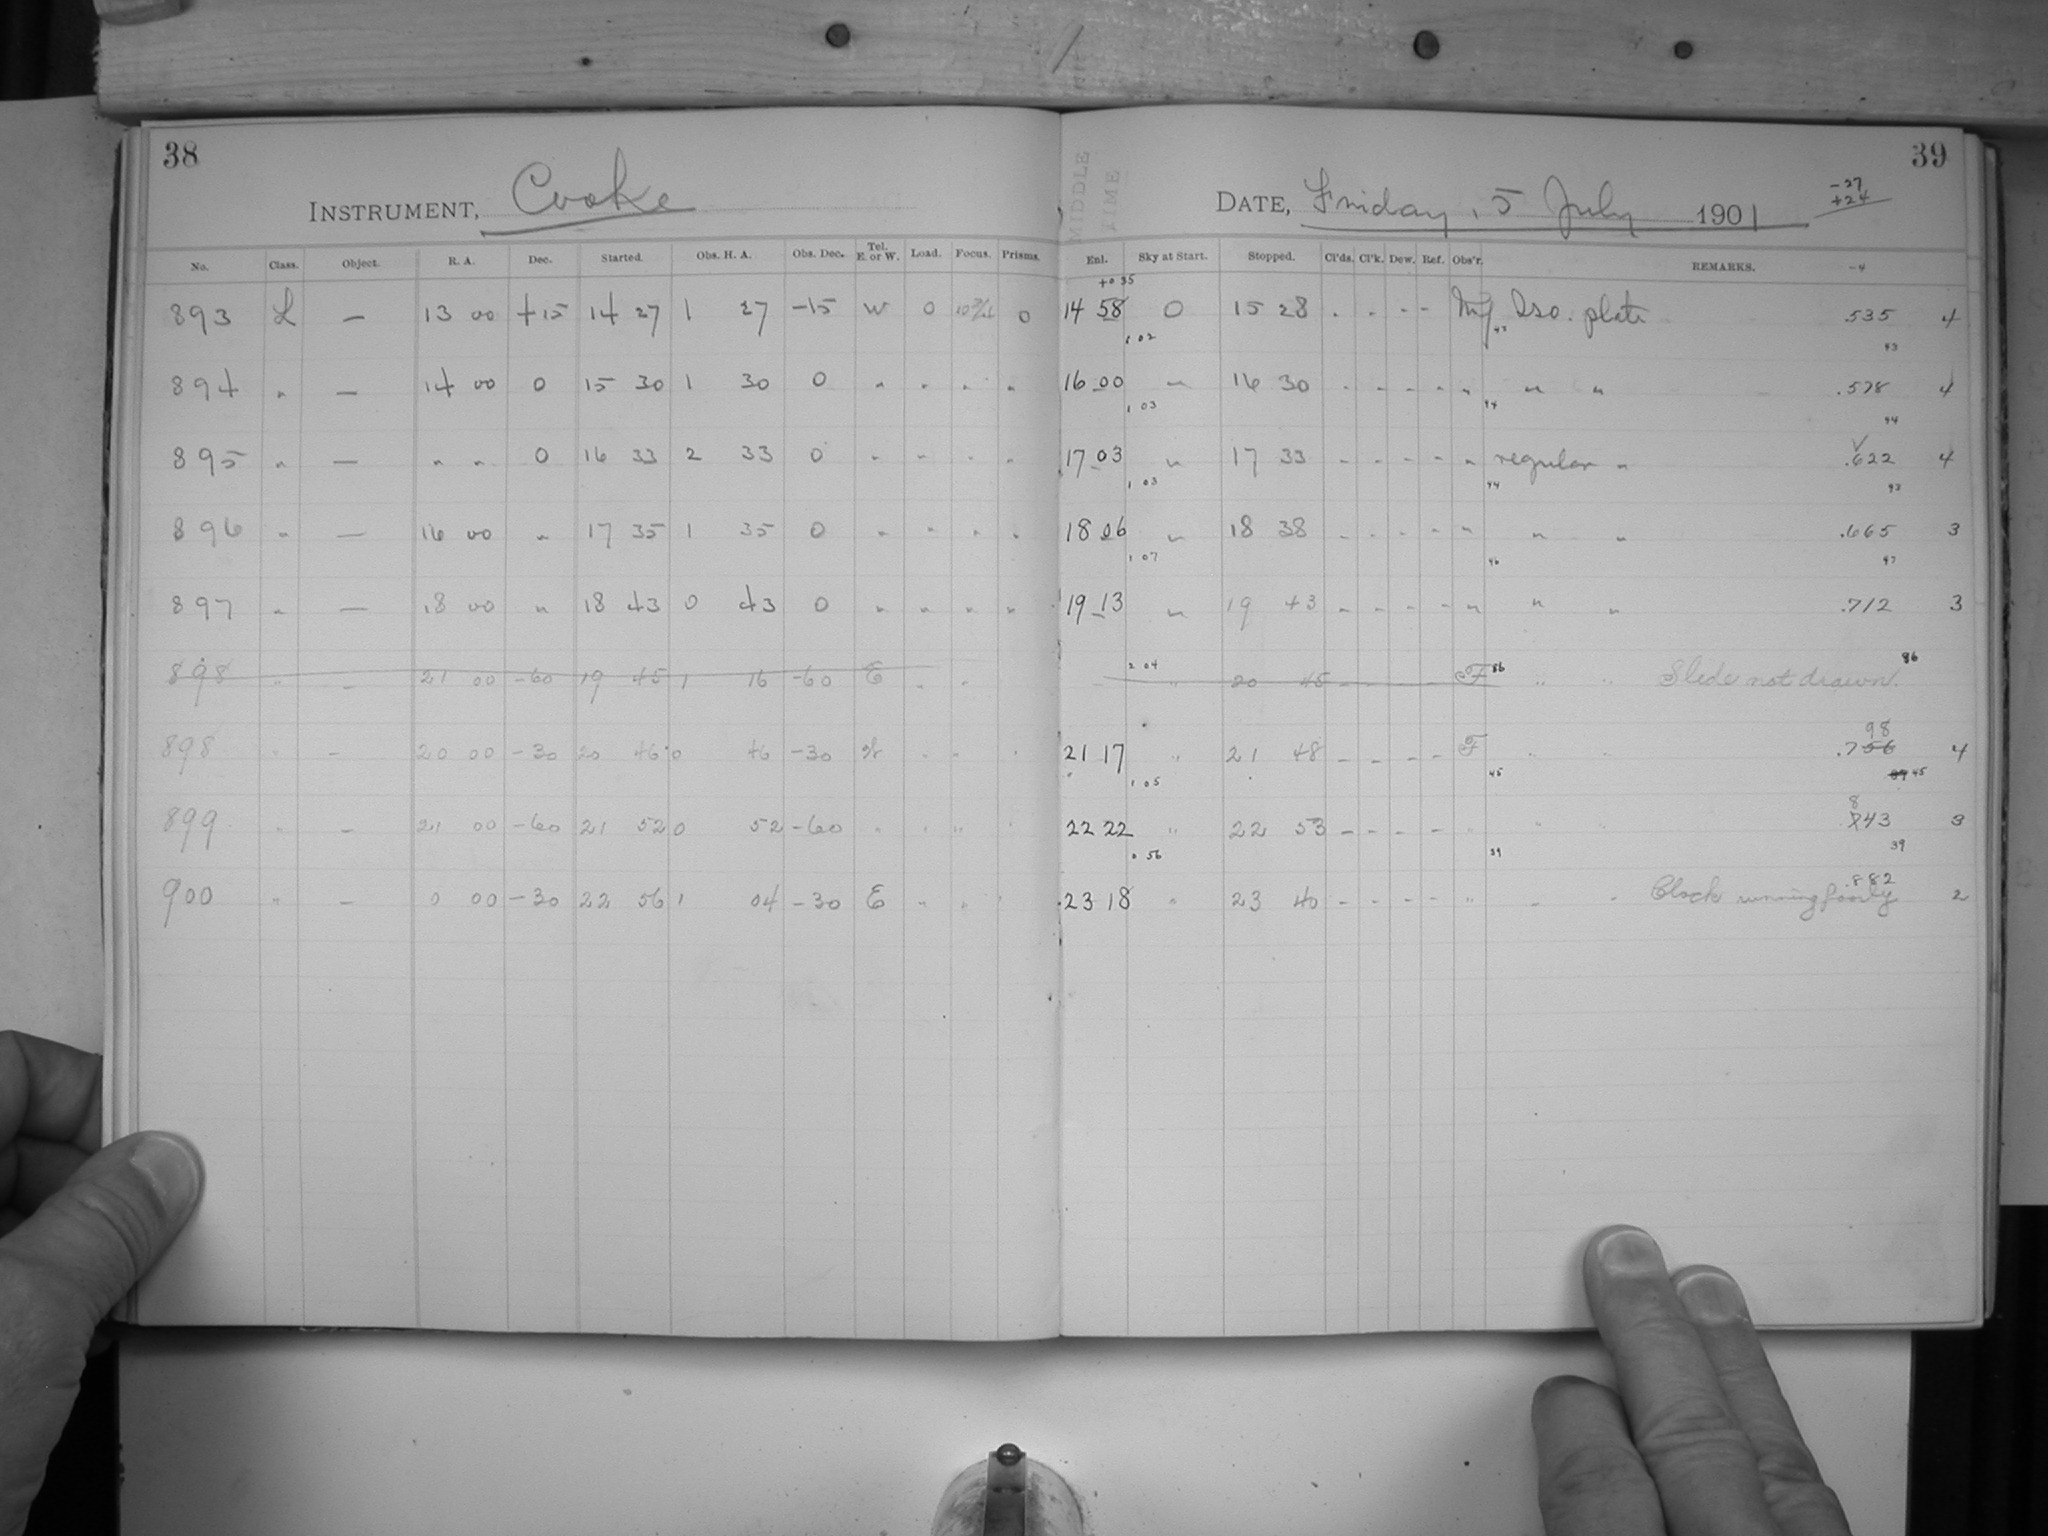 38
INSTRUMENT, Cooke
No. Class. Object. R. A. Dec. Started. Obs. H. A. Obs. Dec. Tel. E. or W. Load. Focus. Prisms.
893 L — 13 00 +15 14 27 1 27 -15 W 0 0
894 " — 14 00 0 15 30 1 30 0 " " " "
895 " — " " 0 16 33 2 33 0 " " " "
896 " — 16 00 " 17 35 1 35 0 " " " "
897 " — 18 00 " 18 43 0 43 0 " " " "
898 " — 21 00 -60 19 45 1 16 -60 E " "
898 " — 20 00 -30 20 46 0 46 -30 W " " "
899 " — 21 00 -60 21 52 0 52 -60 " " " "
900 " — 0 00 -30 22 56 1 04 -30 E " " "
39
MIDDLE TIME
DATE, Friday, 5 July 1901
-27
+24
Enl. Sky at Start. Stopped. Cl'ds. Cl'k. Dew. Ref. Obs'r. REMARKS. -4
+0 35
14 58 0 15 28 - - - - Iso. plate .535 4
1 02 43 43
16 00 " 16 30 - - - - " " " .578 4
1 03 44 44
17 03 " 17 33 - - - - " regular " .622 4
1 03 44 43
18 06 " 18 38 - - - - " " " .665 3
1 07 46 47
19 13 " 19 43 - - - - " " " .712 3
2 04 86 86
" 20 45 - - - - F " " Slide not drawn.
98
21 17 " 21 48 - - - - F " " .756 4
1 05 45 45
8
22 22 " 22 53 - - - - " " " 43 3
0 56 39 39
.882
23 18 " 23 40 - - - - " " " Clock running poorly 2